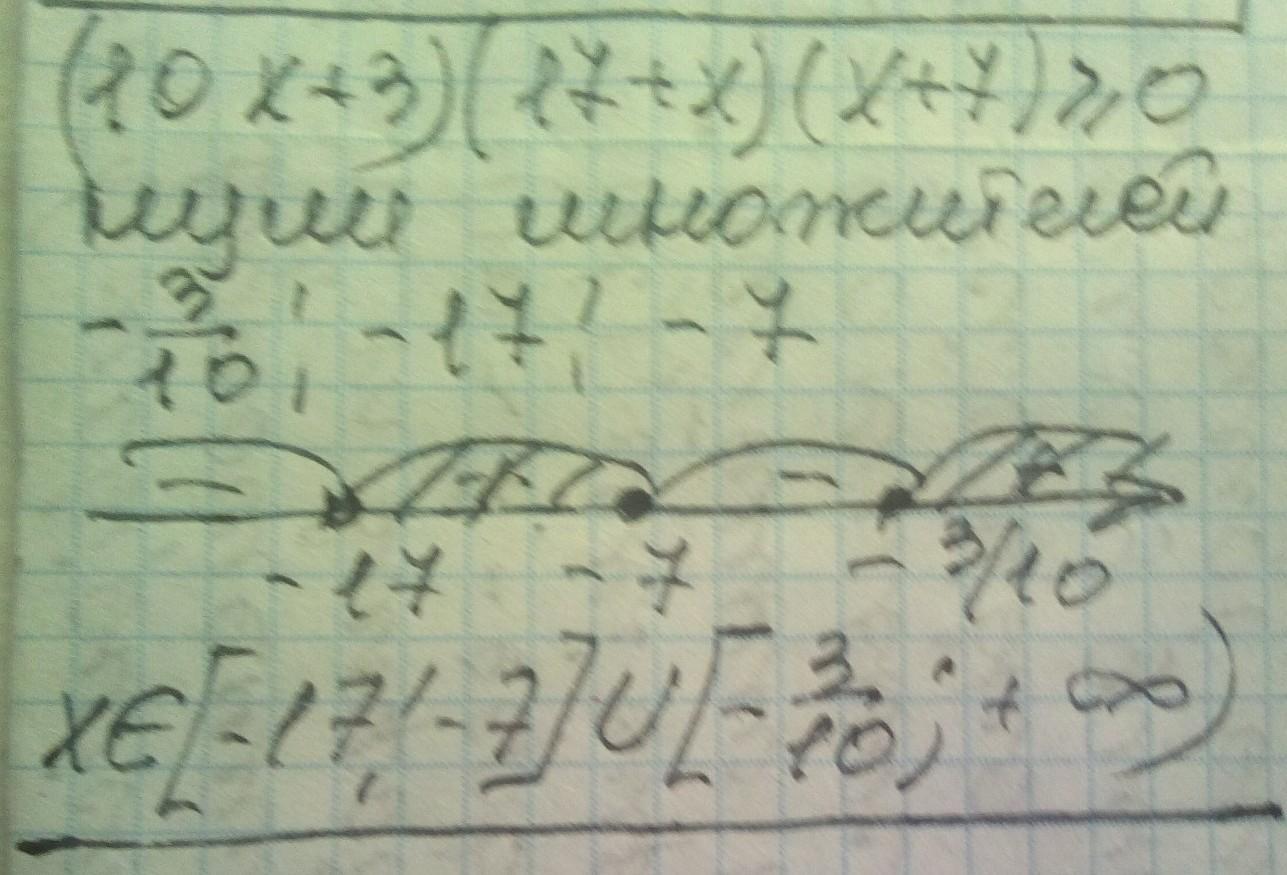 (10x+3)(17+x)(x+7)⩾0
нули множителей
-3/10; -17; -7
- + - +
-17 -7 -3/10
x∈[-17;-7]∪[-3/10;+∞)